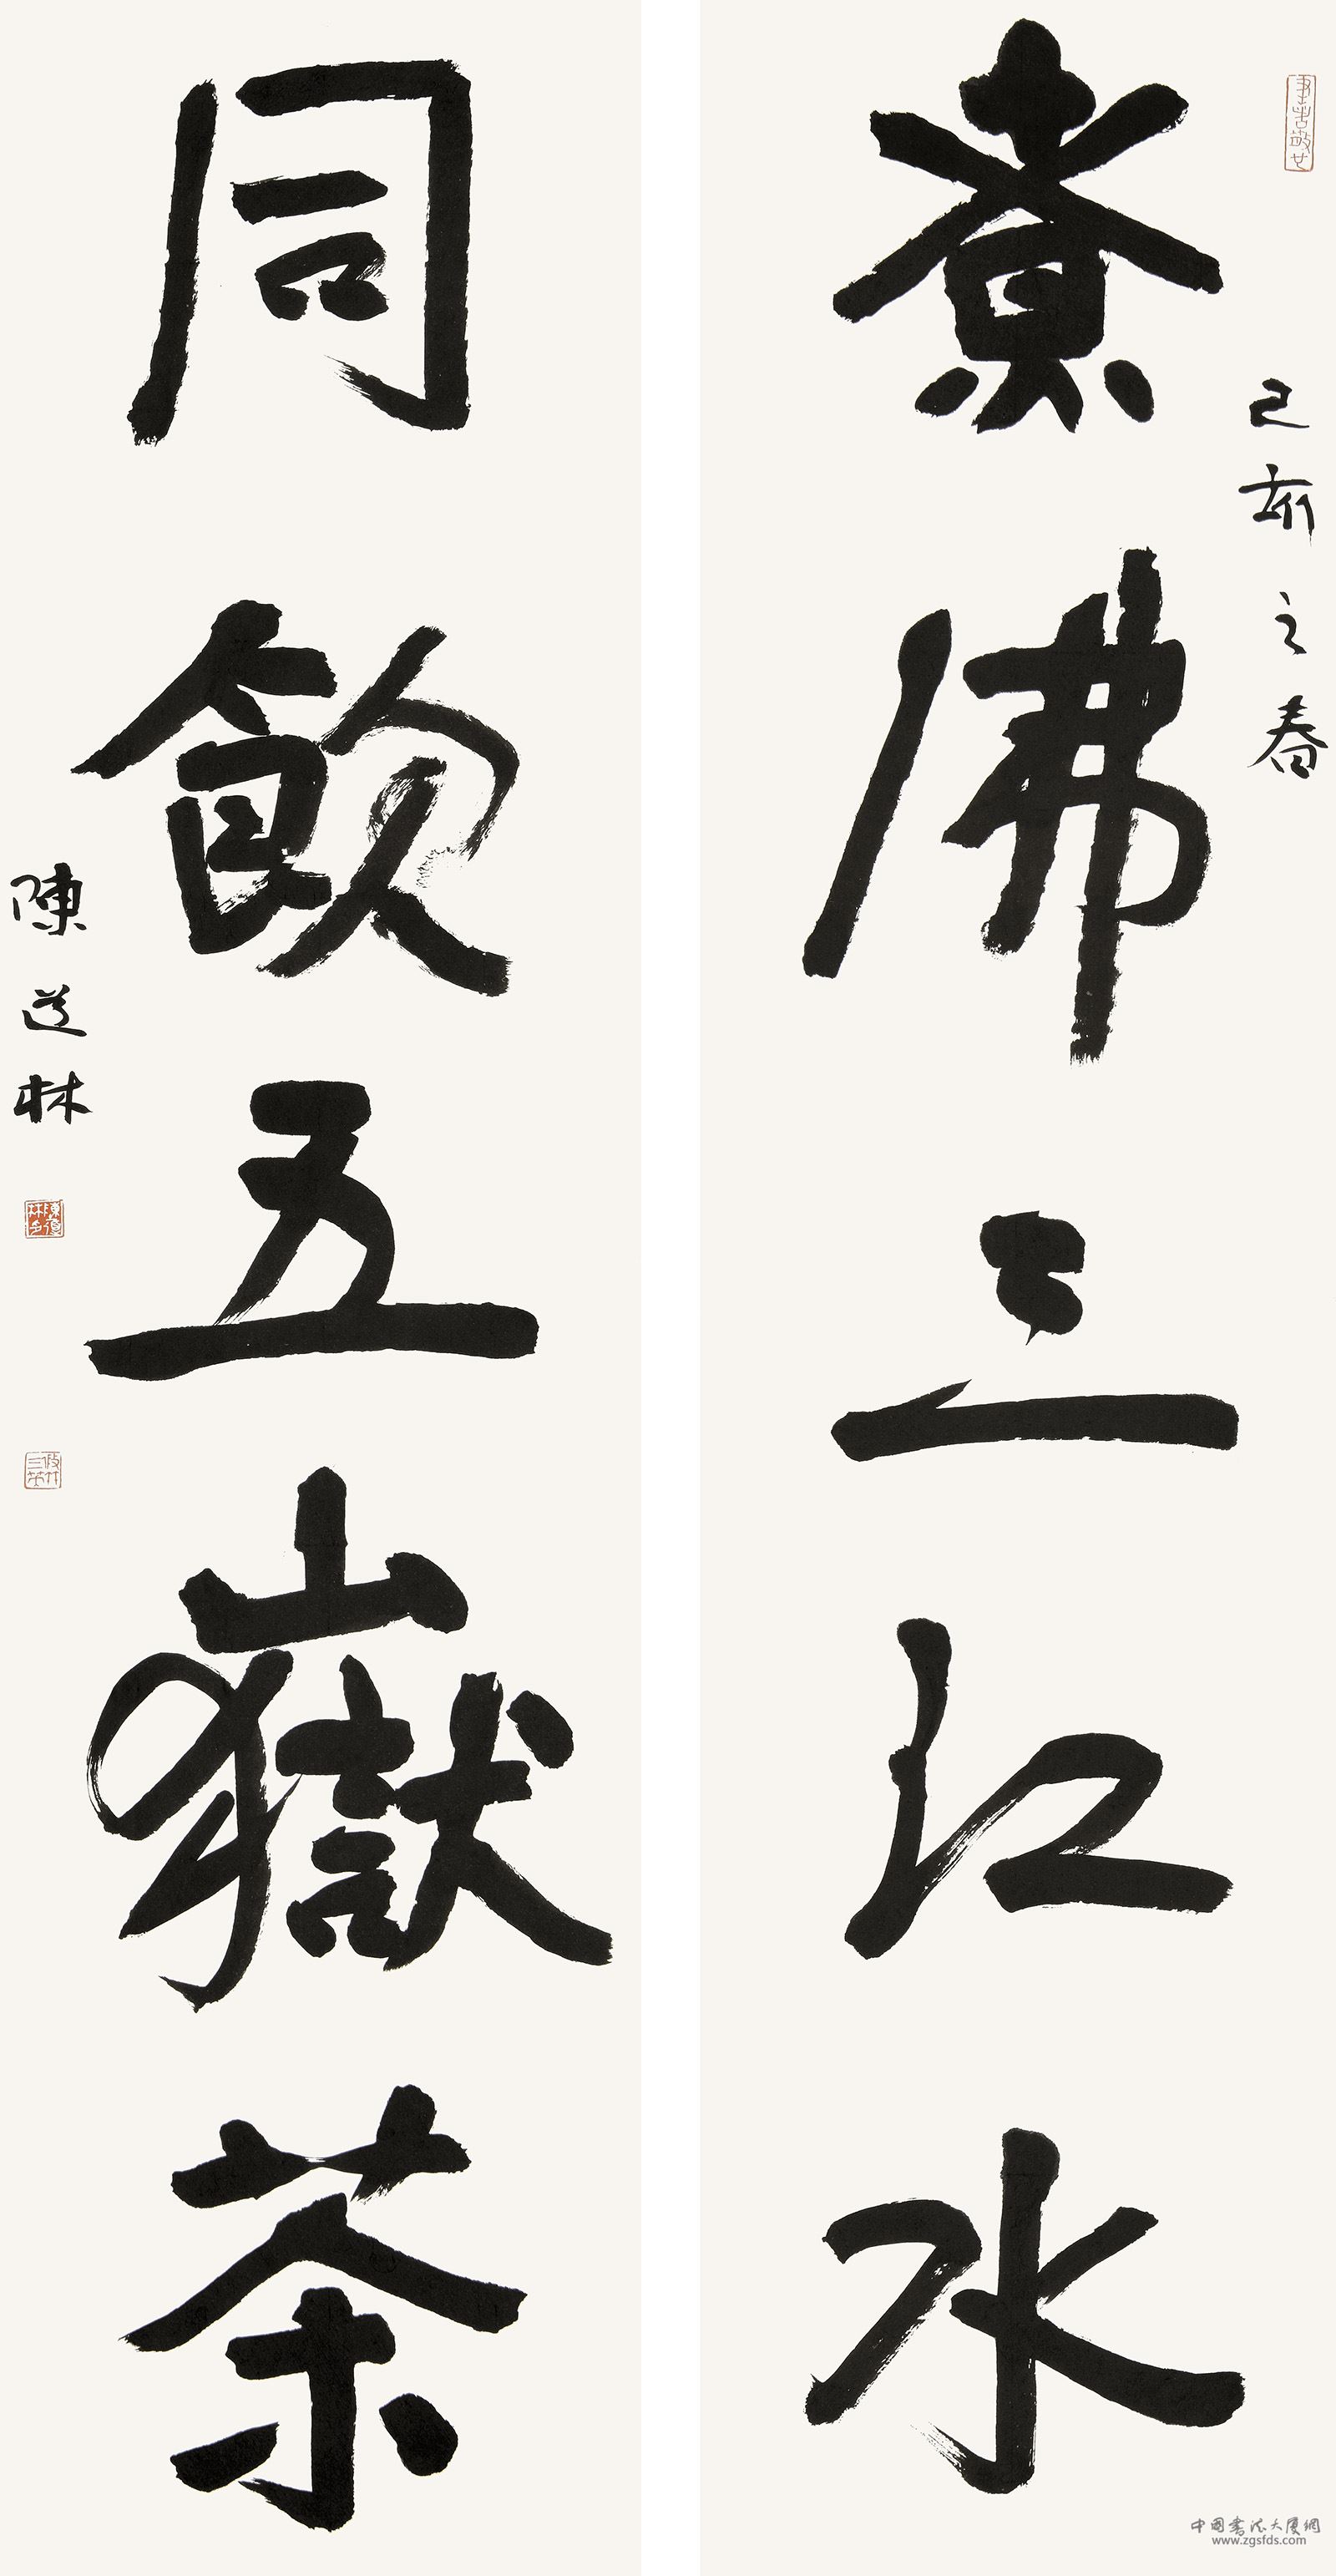 煮沸三江水
己亥之春
同飲五嶽茶
陳道林
中國書法大廈網
www.zgsfds.com